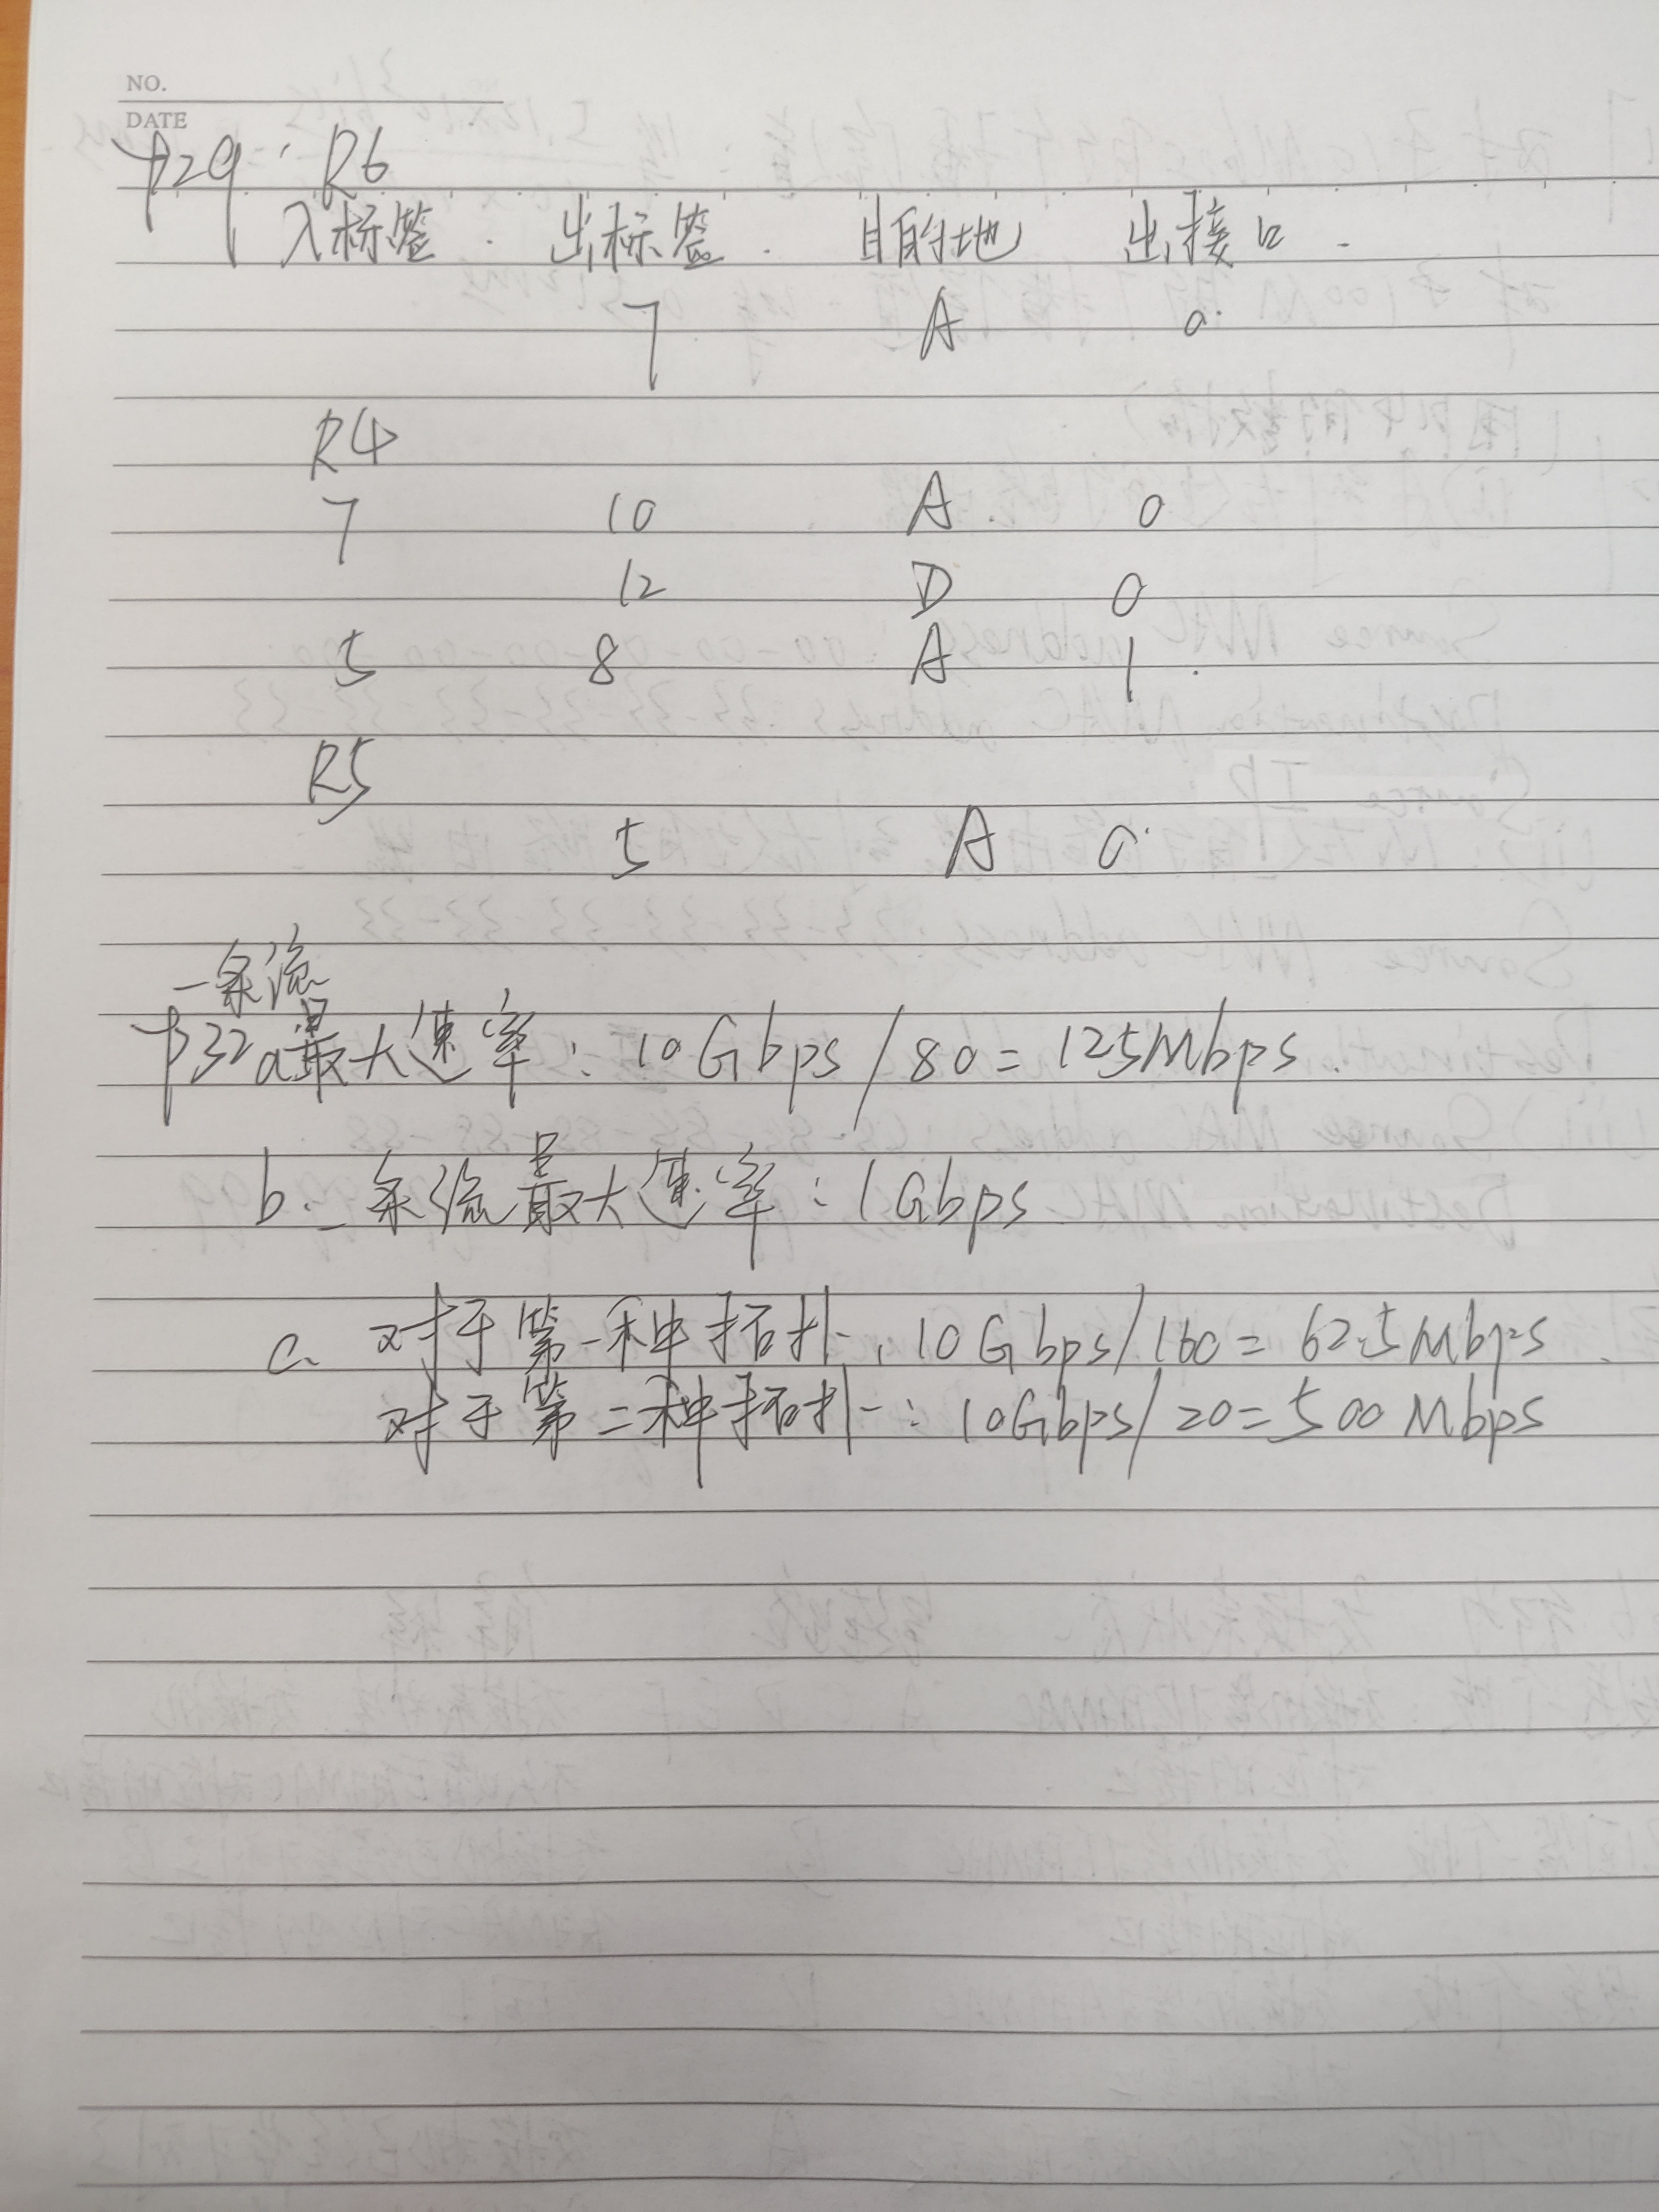 NO.
DATE
P29. R6
入标签. 出标签. 目的地 出接口.
7 A 0.
R4
7 10 A. 0
12 D 0
5 8 A 1.
R5
5 A 0.
一条流
P32 a最大速率: 10Gbps/80=125Mbps.
b. 一条流最大速率: 1Gbps
c. 对于第一种拓扑: 10Gbps/160=62.5Mbps.
对于第二种拓扑: 10Gbps/20=500Mbps